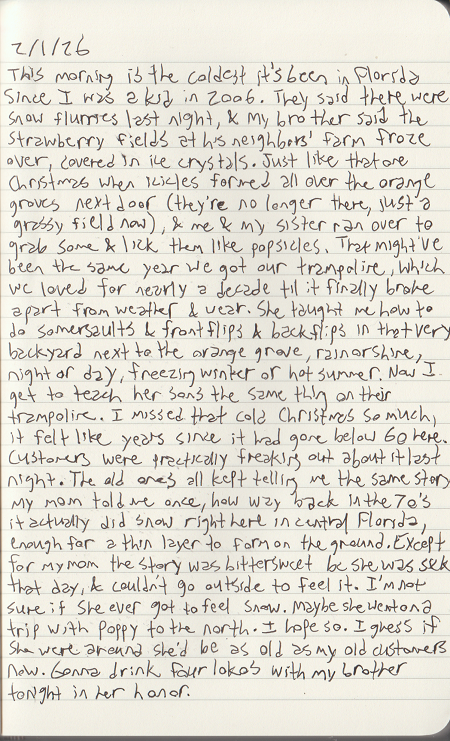 2/1/26
This morning is the coldest it's been in Florida
Since I was a kid in 2006. They said there were
snow flurries last night, & my brother said the
strawberry fields at his neighbors' farm froze
over, covered in ice crystals. Just like that one
Christmas when icicles formed all over the orange
groves next door (they're no longer there, just a
grassy field now), & me & my sister ran over to
grab some & lick them like popsicles. That might've
been the same year we got our trampoline, which
we loved for nearly a decade til it finally broke
apart from weather & wear. She taught me how to
do somersaults & frontflips & backflips in that very
backyard next to the orange grove, rain or shine,
night or day, freezing winter or hot summer. Now I
get to teach her sons the same thing on their
trampoline. I missed that cold Christmas so much,
it felt like years since it had gone below 60 here.
Customers were practically freaking out about it last
night. The old ones all kept telling me the same story
my mom told me once, how way back in the 70's
it actually did snow right here in central Florida,
enough for a thin layer to form on the ground. Except
for my mom the story was bittersweet bc she was sick
that day, & couldn't go outside to feel it. I'm not
sure if she ever got to feel snow. Maybe she went on a
trip with Poppy to the north. I hope so. I guess if
she were around she'd be as old as my old customers
now. Gonna drink four lokos with my brother
tonight in her honor.